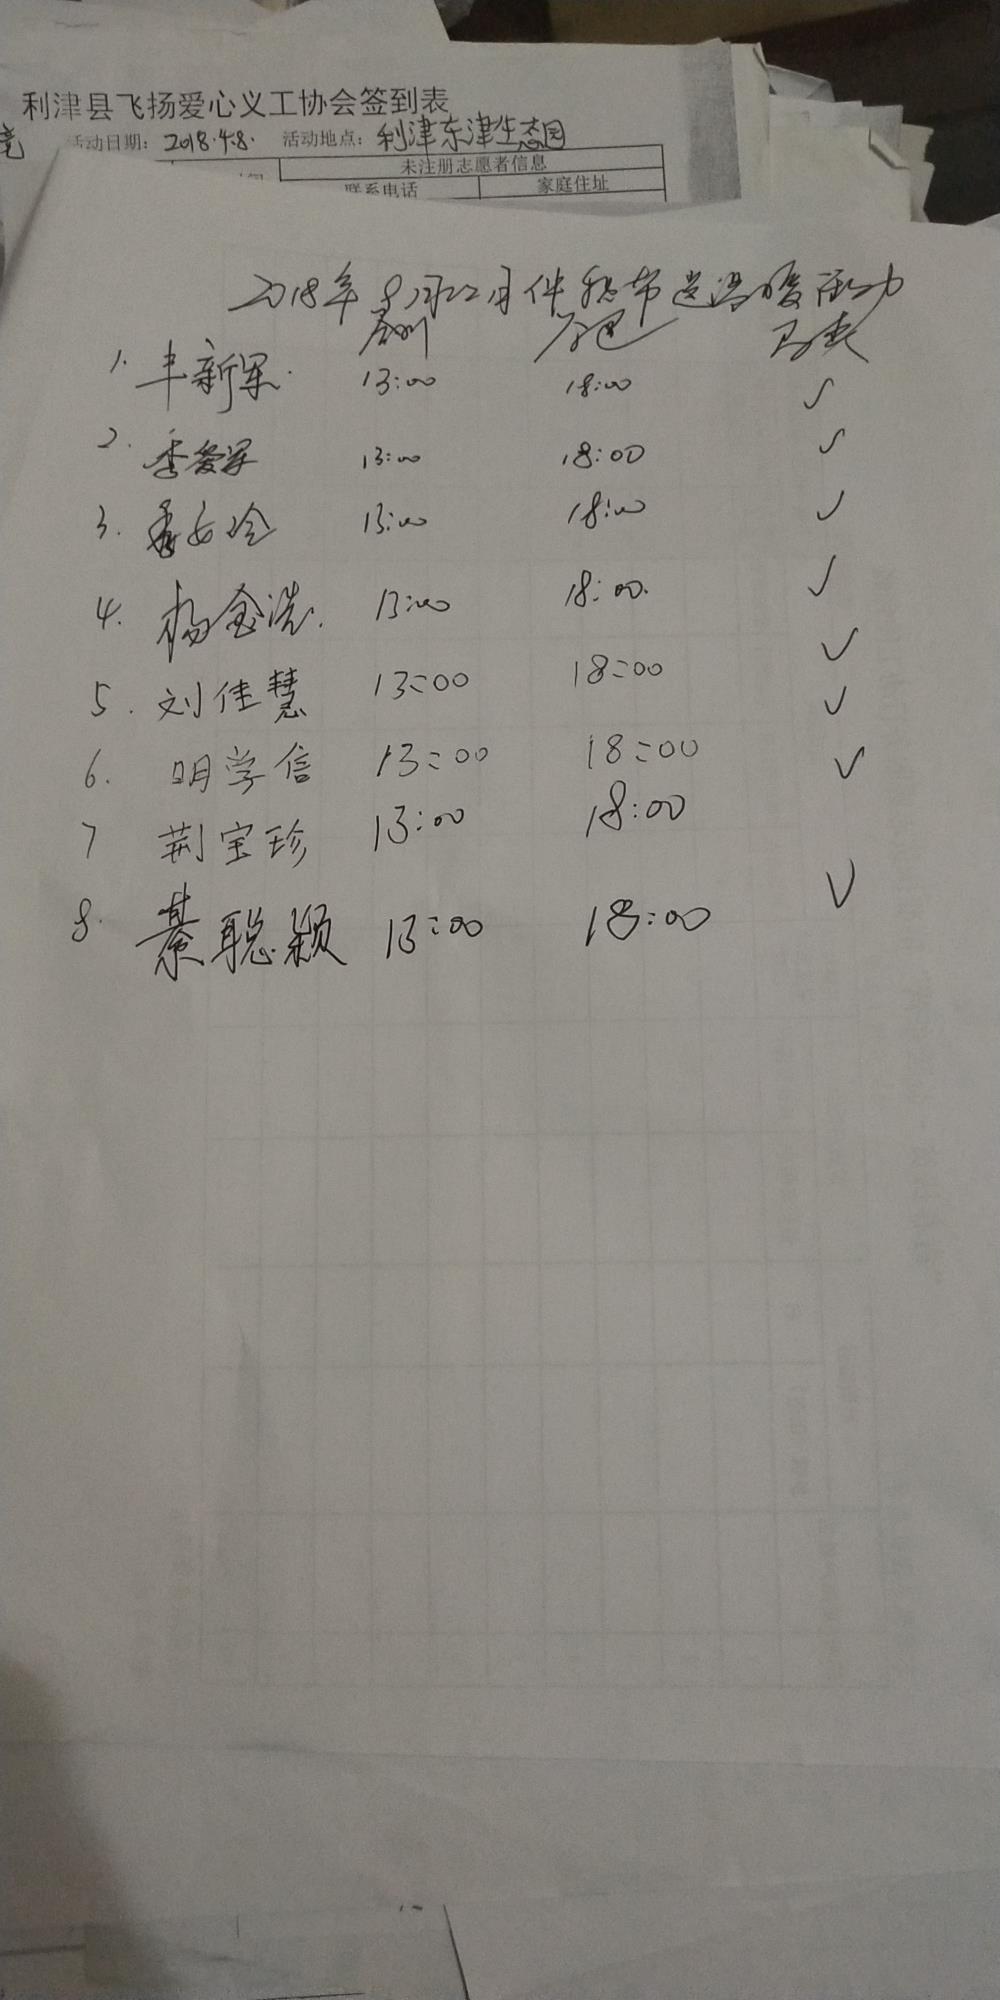 利津县飞扬爱心义工协会签到表
活动日期：2018.4.8. 活动地点：利津东津生态园
未注册志愿者信息
联系电话 家庭住址
2018年9月22日仲秋节送温暖活动
签到 签退 马夹
1. 丰新军. 13:00 18:00 ✓
2. 季爱军 13:00 18:00 ✓
3. 13:00 18:00 ✓
4. 杨金浩. 13:00 18:00. ✓
5. 刘佳慧 13:00 18:00 ✓
6. 明学信 13:00 18:00 ✓
7 荆宝珍 13:00 18:00 ✓
8. 綦聪颖 13:00 18:00 ✓